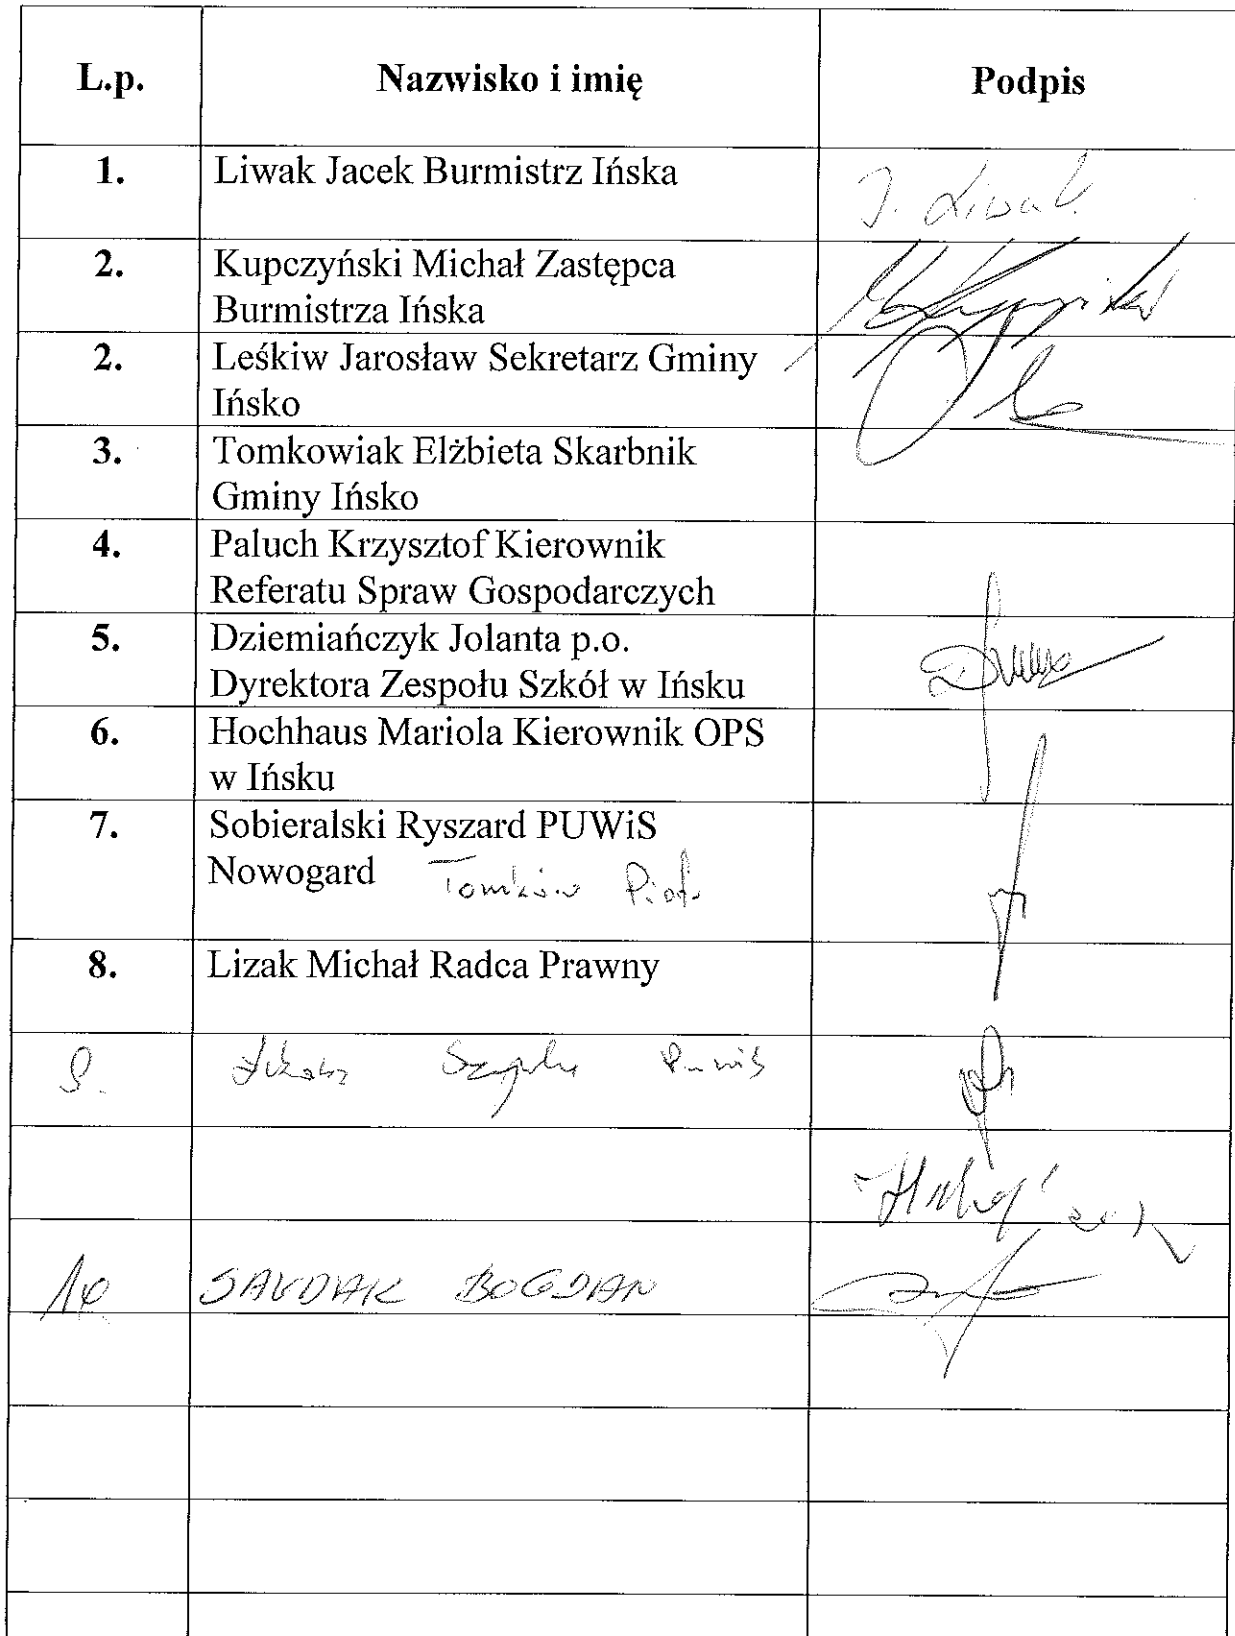 L.p. Nazwisko i imię Podpis
1. Liwak Jacek Burmistrz Ińska J. Liwak
2. Kupczyński Michał Zastępca
Burmistrza Ińska
2. Leśkiw Jarosław Sekretarz Gminy
Ińsko
3. Tomkowiak Elżbieta Skarbnik
Gminy Ińsko
4. Paluch Krzysztof Kierownik
Referatu Spraw Gospodarczych
5. Dziemiańczyk Jolanta p.o.
Dyrektora Zespołu Szkół w Ińsku
6. Hochhaus Mariola Kierownik OPS
w Ińsku
7. Sobieralski Ryszard PUWiS
Nowogard Piotr
8. Lizak Michał Radca Prawny
9.
10 BOGDAN